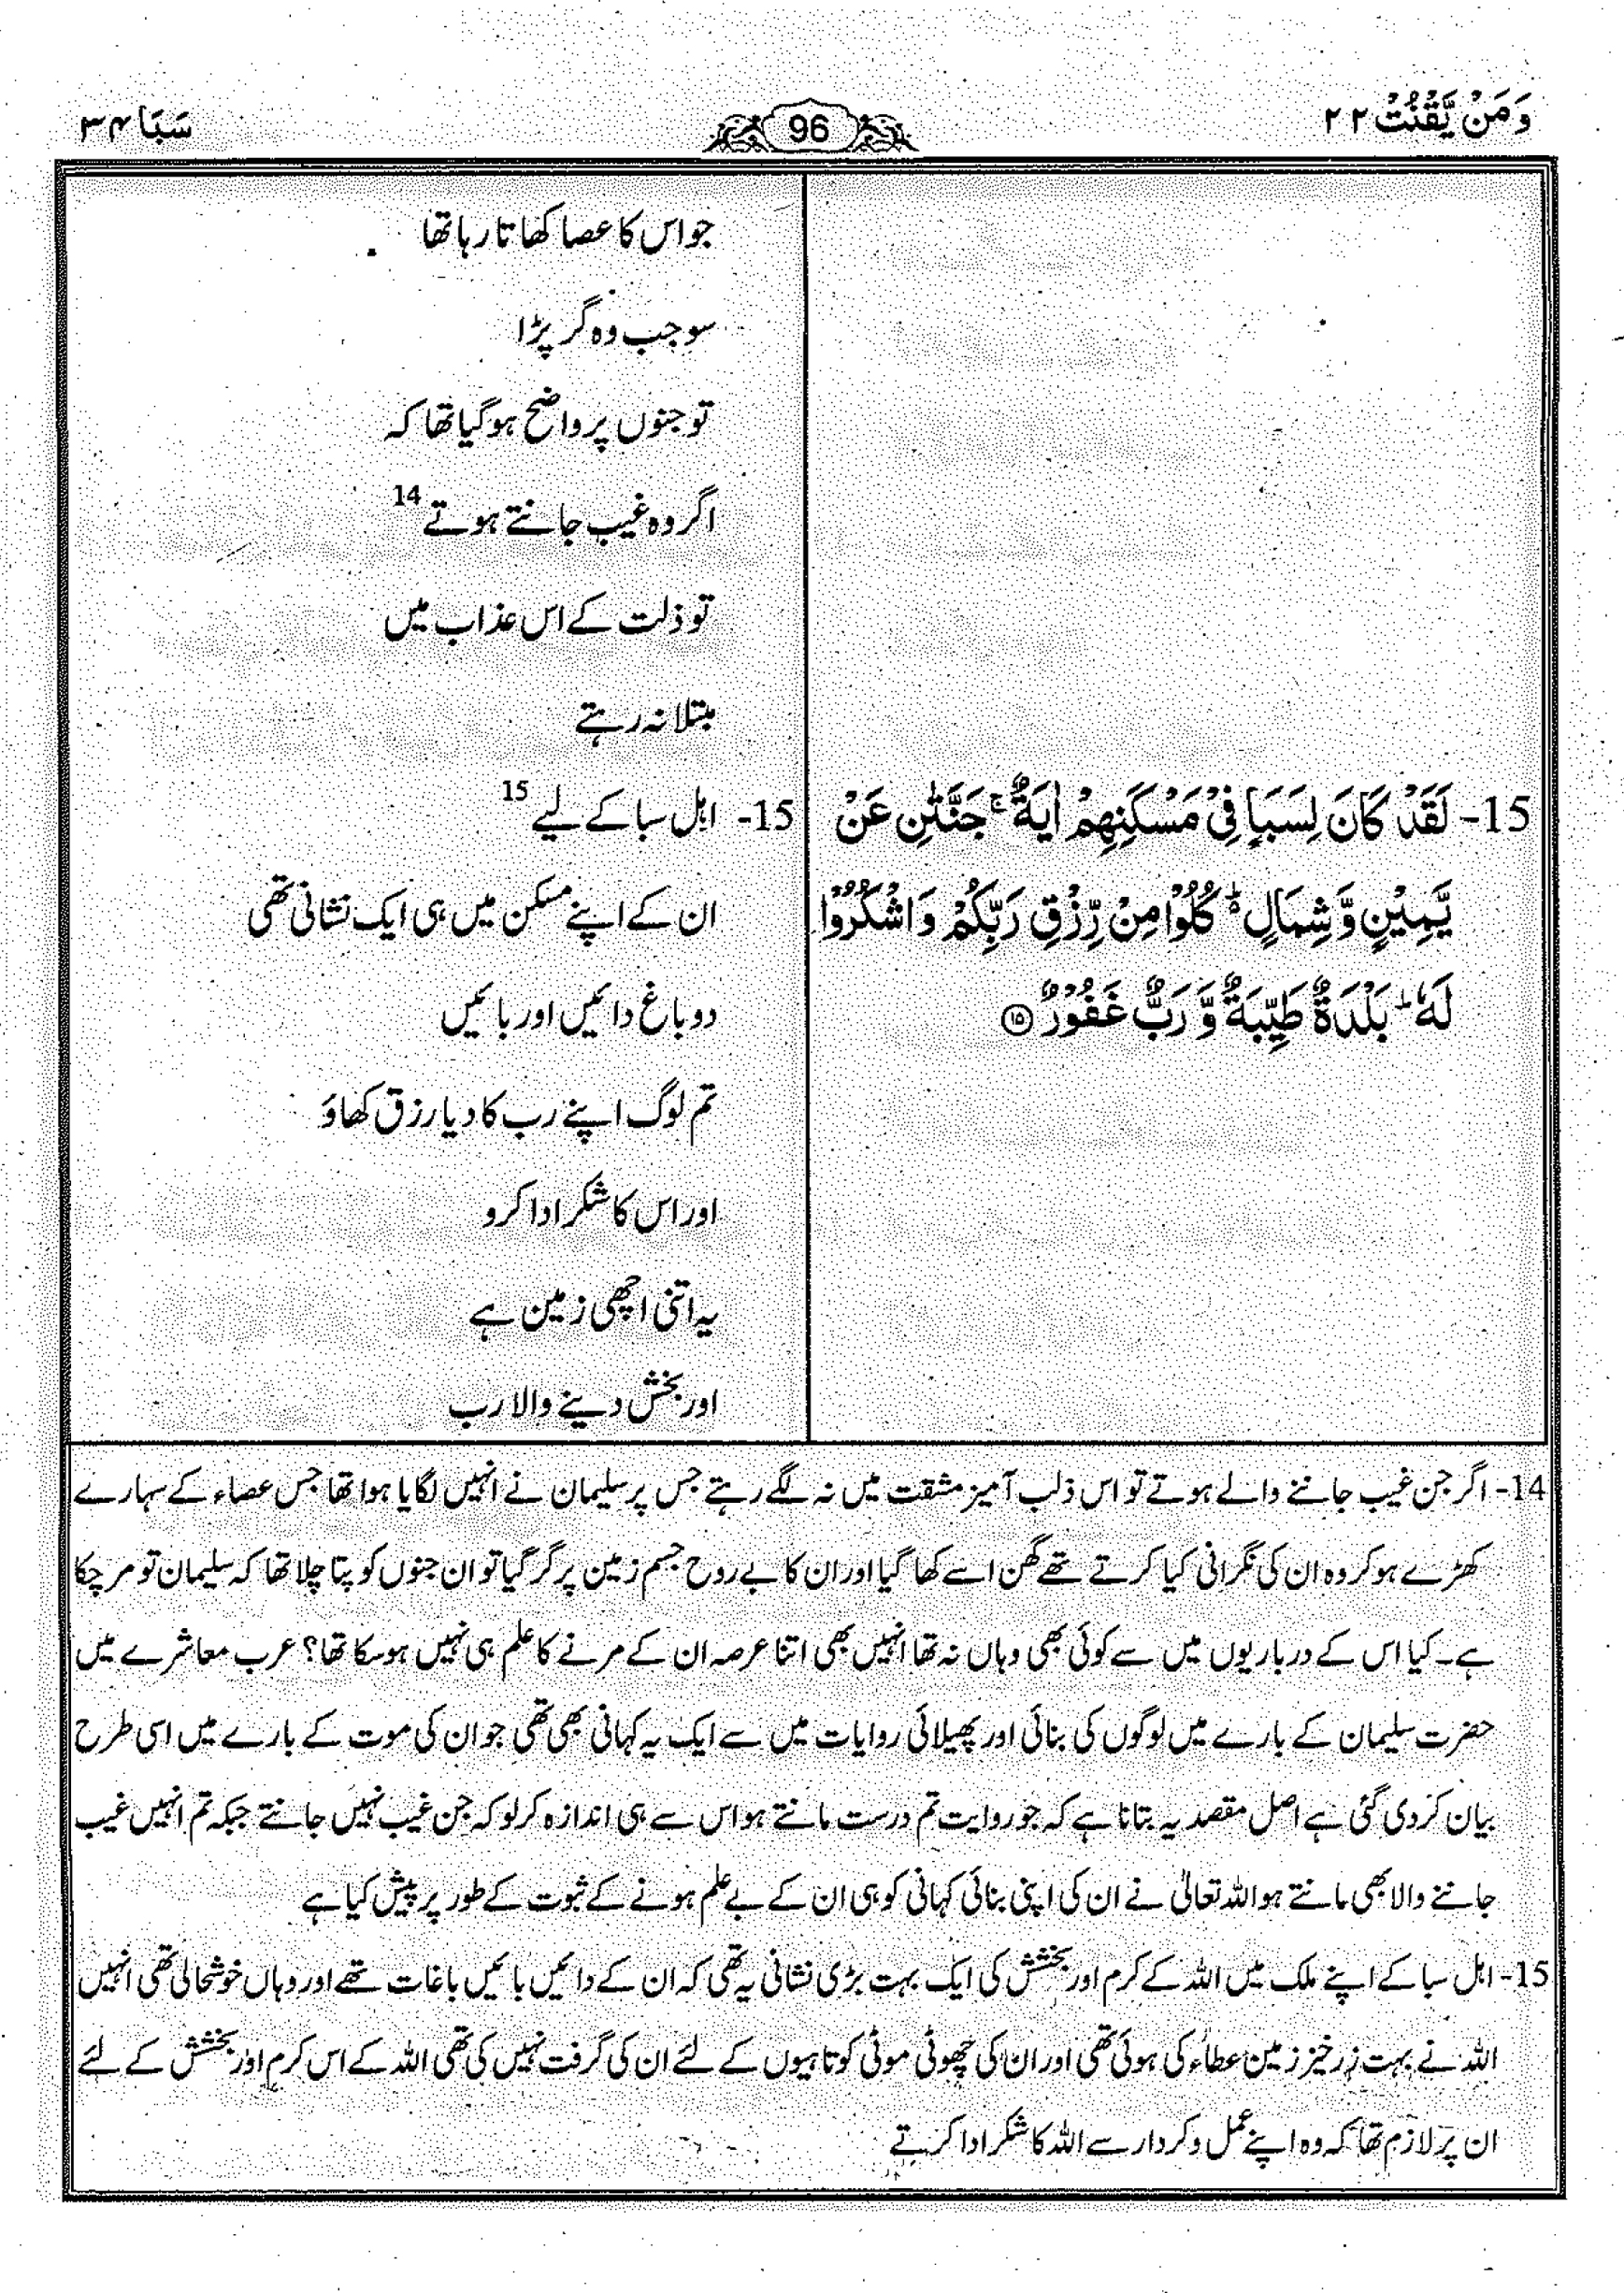 وَمَنْ يَّقْنُتْ ٢٢
96
سَبَا ٣٤
جو اس کا عصا کھاتا رہا تھا
سو جب وہ گر پڑا
تو جنوں پر واضح ہو گیا تھا کہ
اگر وہ غیب جانتے ہوتے 14
تو ذلت کے اس عذاب میں
مبتلا نہ رہتے
15- لَقَدْ كَانَ لِسَبَاٍ فِيْ مَسْكَنِهِمْ اٰيَةٌ ۚ جَنَّتٰنِ عَنْ
يَّمِيْنٍ وَّ شِمَالٍ ؕ كُلُوْا مِنْ رِّزْقِ رَبِّكُمْ وَ اشْكُرُوْا
لَهٗ ؕ بَلْدَةٌ طَيِّبَةٌ وَّ رَبٌّ غَفُوْرٌ ۝۱۵
15- اہل سبا کے لیے 15
ان کے اپنے مسکن میں ہی ایک نشانی تھی
دو باغ دائیں اور بائیں
تم لوگ اپنے رب کا دیا رزق کھاؤ
اور اس کا شکر ادا کرو
یہ اتنی اچھی زمین ہے
اور بخش دینے والا رب
14- اگر جن غیب جاننے والے ہوتے تو اس ذلت آمیز مشقت میں نہ لگے رہتے جس پر سلیمان نے انہیں لگایا ہوا تھا جس عصاء کے سہارے
کھڑے ہو کر وہ ان کی نگرانی کیا کرتے تھے گھن اسے کھا گیا اور ان کا بے روح جسم زمین پر گر گیا تو ان جنوں کو پتا چلا تھا کہ سلیمان تو مر چکا
ہے۔ کیا اس کے درباریوں میں سے کوئی بھی وہاں نہ تھا انہیں بھی اتنا عرصہ ان کے مرنے کا علم ہی نہیں ہو سکا تھا؟ عرب معاشرے میں
حضرت سلیمان کے بارے میں لوگوں کی بنائی اور پھیلائی روایات میں سے ایک یہ کہانی بھی تھی جو ان کی موت کے بارے میں اسی طرح
بیان کر دی گئی ہے اصل مقصد یہ بتانا ہے کہ جو روایت تم درست مانتے ہو اس سے ہی اندازہ کر لو کہ جن غیب نہیں جانتے جبکہ تم انہیں غیب
جاننے والا بھی مانتے ہو اللہ تعالیٰ نے ان کی اپنی بنائی کہانی کو ہی ان کے بے علم ہونے کے ثبوت کے طور پر پیش کیا ہے
15- اہل سبا کے اپنے ملک میں اللہ کے کرم اور بخشش کی ایک بہت بڑی نشانی یہ تھی کہ ان کے دائیں بائیں باغات تھے اور وہاں خوشحالی تھی انہیں
اللہ نے بہت زرخیز زمین عطاء کی ہوئی تھی اور ان کی چھوٹی موٹی کوتاہیوں کے لئے ان کی گرفت نہیں کی تھی اللہ کے اس کرم اور بخشش کے لئے
ان پر لازم تھا کہ وہ اپنے عمل و کردار سے اللہ کا شکر ادا کرتے